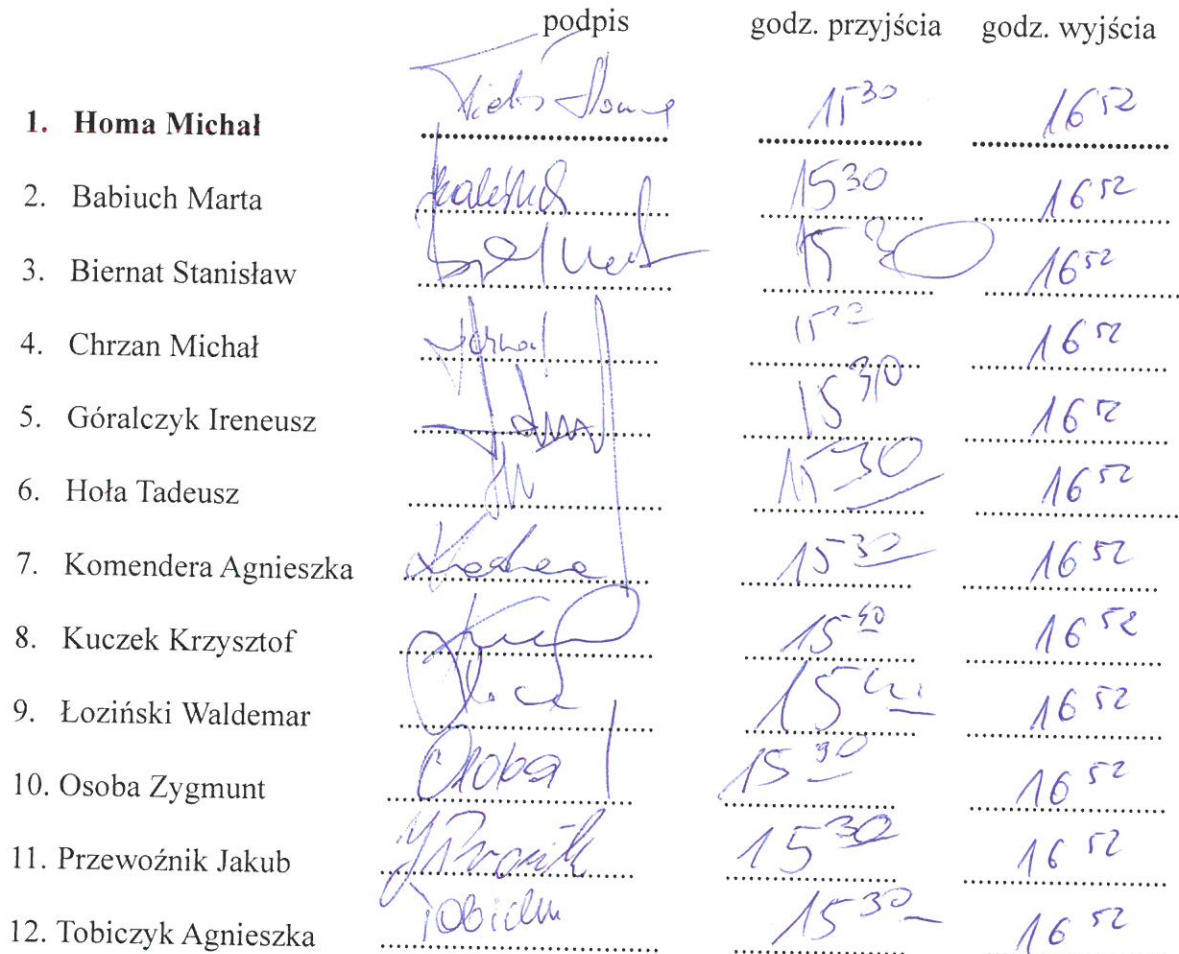 podpis godz. przyjścia godz. wyjścia
1. Homa Michał 15³⁰ 16⁵²
2. Babiuch Marta 15³⁰ 16⁵²
3. Biernat Stanisław 15³⁰ 16⁵²
4. Chrzan Michał 15³⁰ 16⁵²
5. Góralczyk Ireneusz 15³⁰ 16⁵²
6. Hoła Tadeusz 15³⁰ 16⁵²
7. Komendera Agnieszka 15³⁰ 16⁵²
8. Kuczek Krzysztof 15⁴⁰ 16⁵²
9. Łoziński Waldemar 16⁵²
10. Osoba Zygmunt Osoba 15³⁰ 16⁵²
11. Przewoźnik Jakub 15³⁰ 16⁵²
12. Tobiczyk Agnieszka 15³⁰ 16⁵²